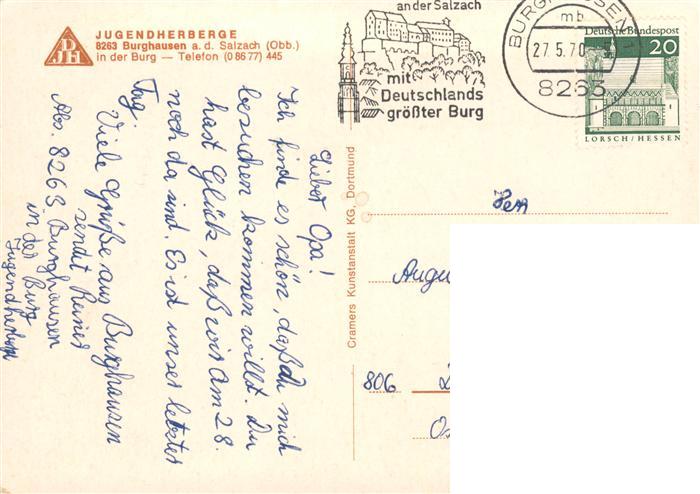 JUGENDHERBERGE
8263 Burghausen a. d. Salzach (Obb.)
in der Burg — Telefon (0 86 77) 445
DJH
an der Salzach
mit
Deutschlands
größter Burg
BURGHAUSEN 1
mb
27.5.70
8263
Deutsche Bundespost
20
LORSCH/HESSEN
Lieber Opa!
Ich finde es schön, daß du mich
besuchen kommen willst. Du
hast Glück, daß wir am 28.
noch da sind. Es ist unser letzter
Tag.
Viele Grüße aus Burghausen
sendet Reiner
Abs. 8263 Burghausen
in der Burg
Jugendherberge
Cramers Kunstanstalt KG, Dortmund
Herr
Augu
806